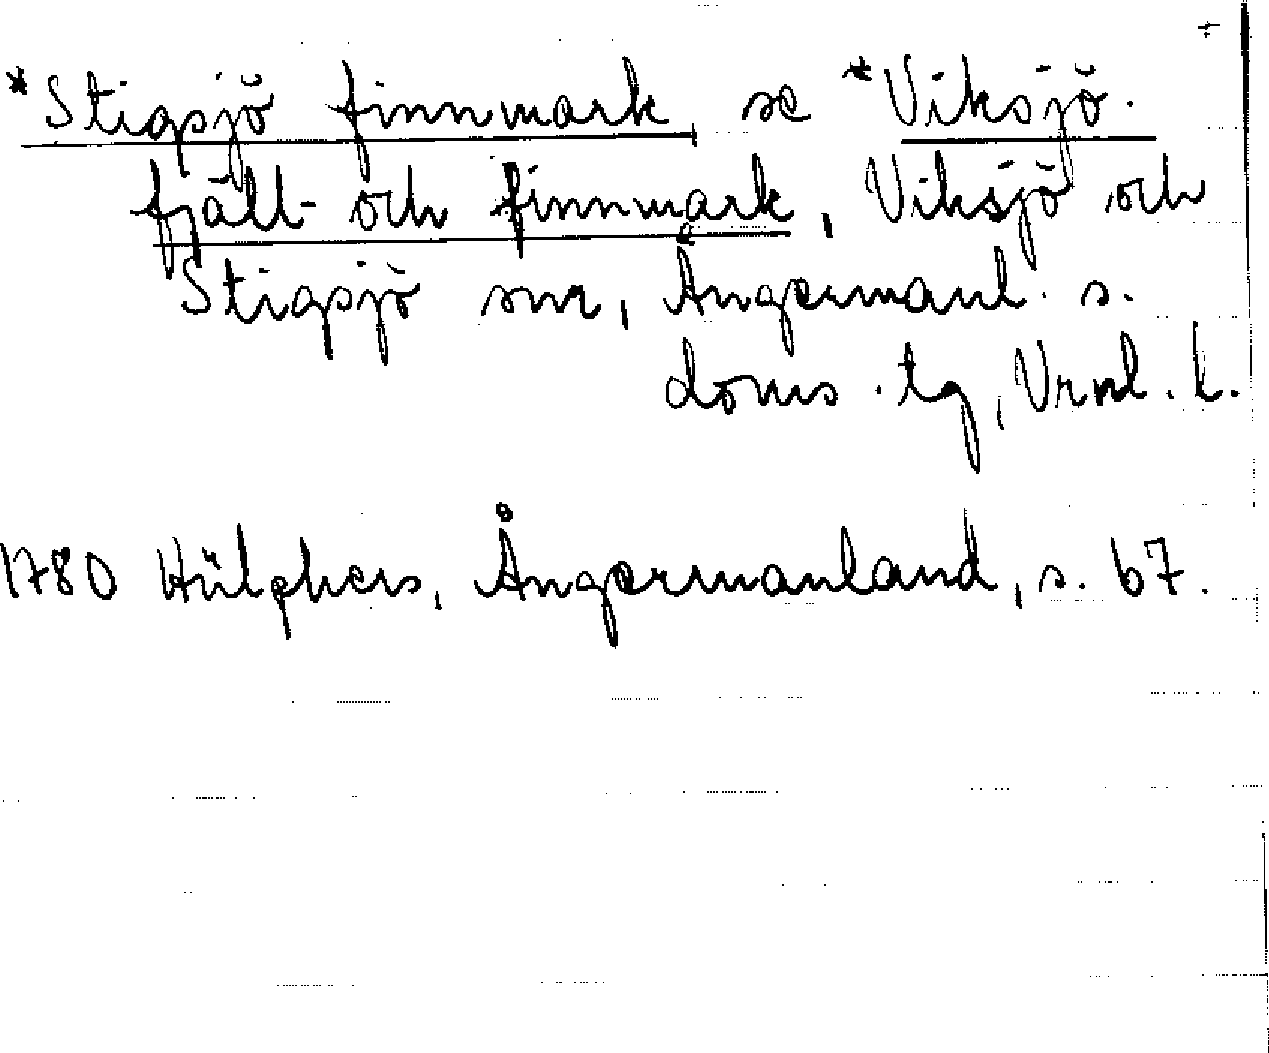 *Stigsjö finnmark se *Viksjö.
fjäll- och finnmark, Viksjö och
Stigsjö snr, Ångermanl. s.
doms. tg, Vrnl. l.
1780 Hülphers, Ångermanland, s. 67.